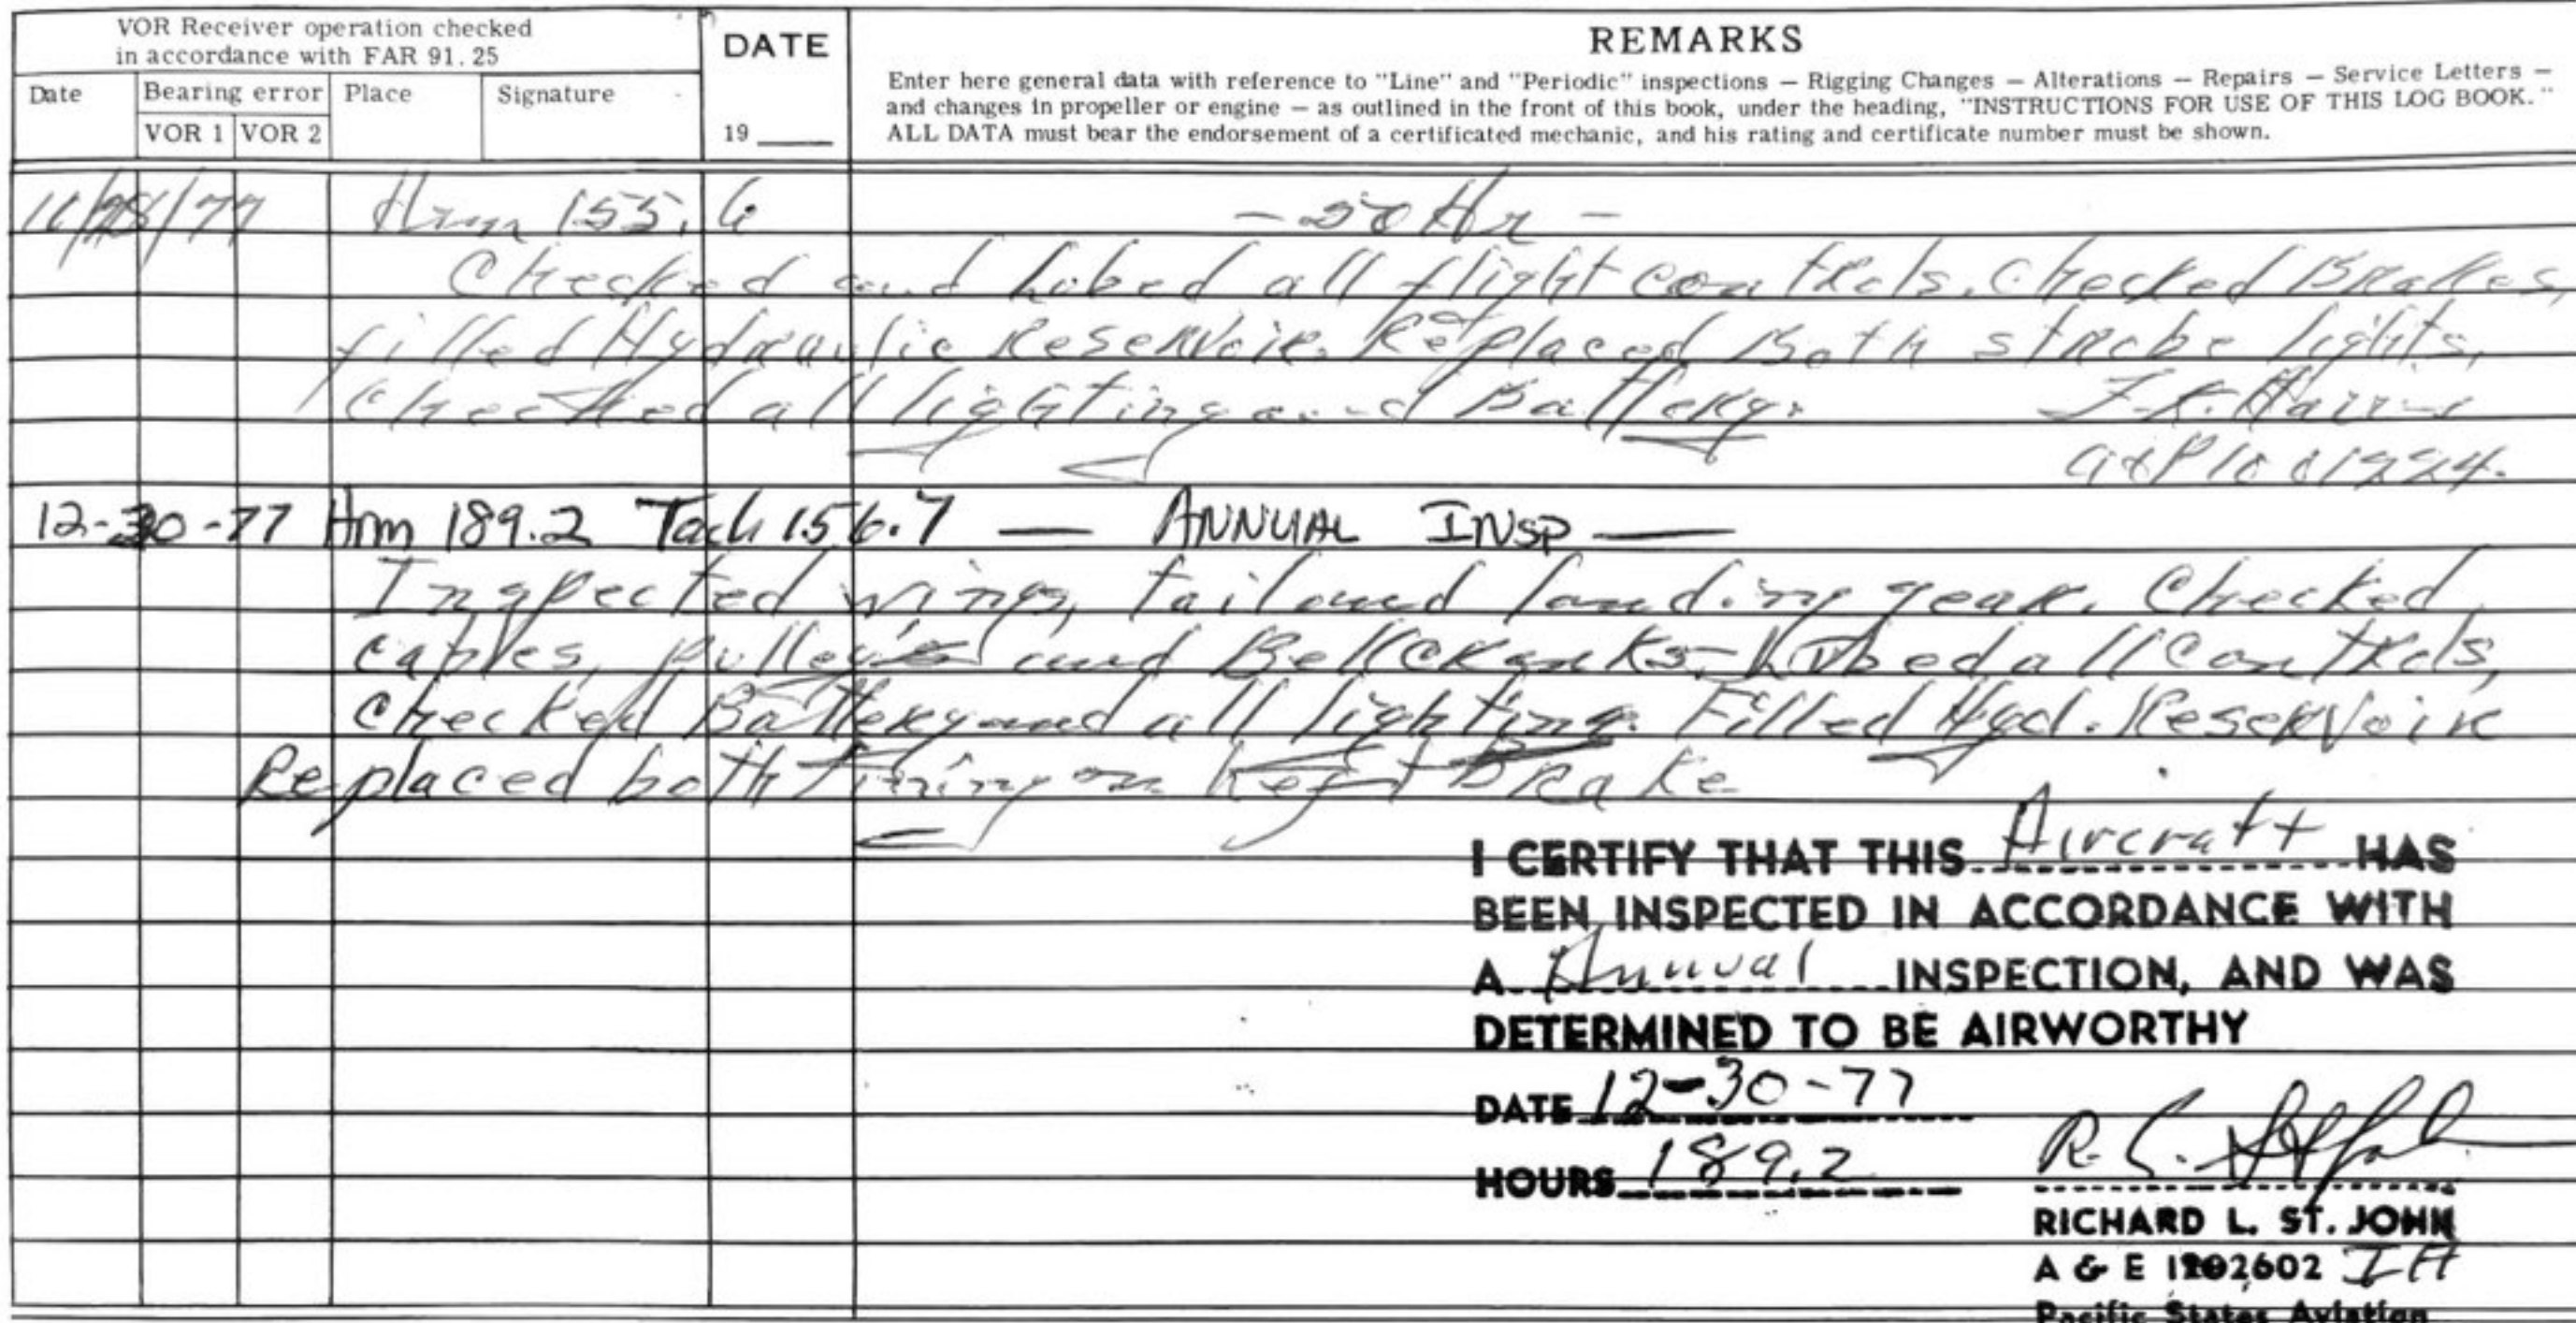 VOR Receiver operation checked
in accordance with FAR 91.25
Date
Bearing error
VOR 1 VOR 2
Place
Signature
DATE
19
REMARKS
Enter here general data with reference to "Line" and "Periodic" inspections — Rigging Changes — Alterations — Repairs — Service Letters —
and changes in propeller or engine — as outlined in the front of this book, under the heading, "INSTRUCTIONS FOR USE OF THIS LOG BOOK."
ALL DATA must bear the endorsement of a certificated mechanic, and his rating and certificate number must be shown.
Hrm 155.6 - 50 Hr -
Checked and Lubed all flight controls. Checked Brakes,
filled Hydraulic Reservoir. Replaced Both strobe lights,
Checked all lighting and Battery.
12-30-77 Hrm 189.2 Tach 156.7 — ANNUAL INSP —
Inspected wings, tail and landing gear. Checked
cables, pulleys and Bellcranks. Lubed all Controls,
Checked Battery and all lighting. Filled Hyd. Reservoir
Replaced both lining on Left Brake
I CERTIFY THAT THIS Aircraft HAS
BEEN INSPECTED IN ACCORDANCE WITH
A Annual INSPECTION, AND WAS
DETERMINED TO BE AIRWORTHY
DATE 12-30-77
HOURS 189.2
RICHARD L. ST. JOHN
A & E IA
Pacific States Aviation